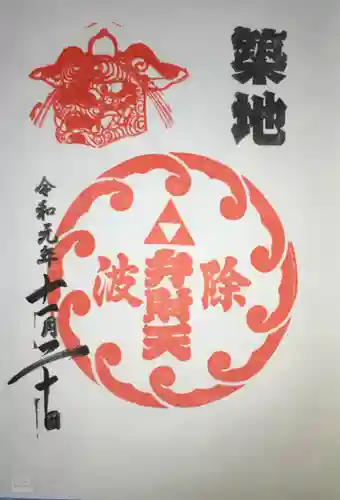 築地
波除
弁財天
令和元年
十一月二十日